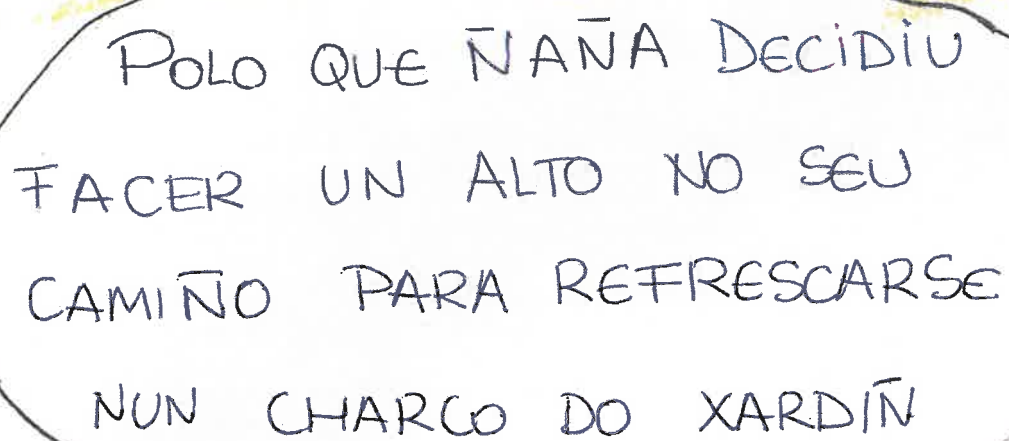 POLO QUE ÑAÑA DECIDIU
FACER UN ALTO NO SEU
CAMIÑO PARA REFRESCARSE
NUN CHARCO DO XARDIÑ